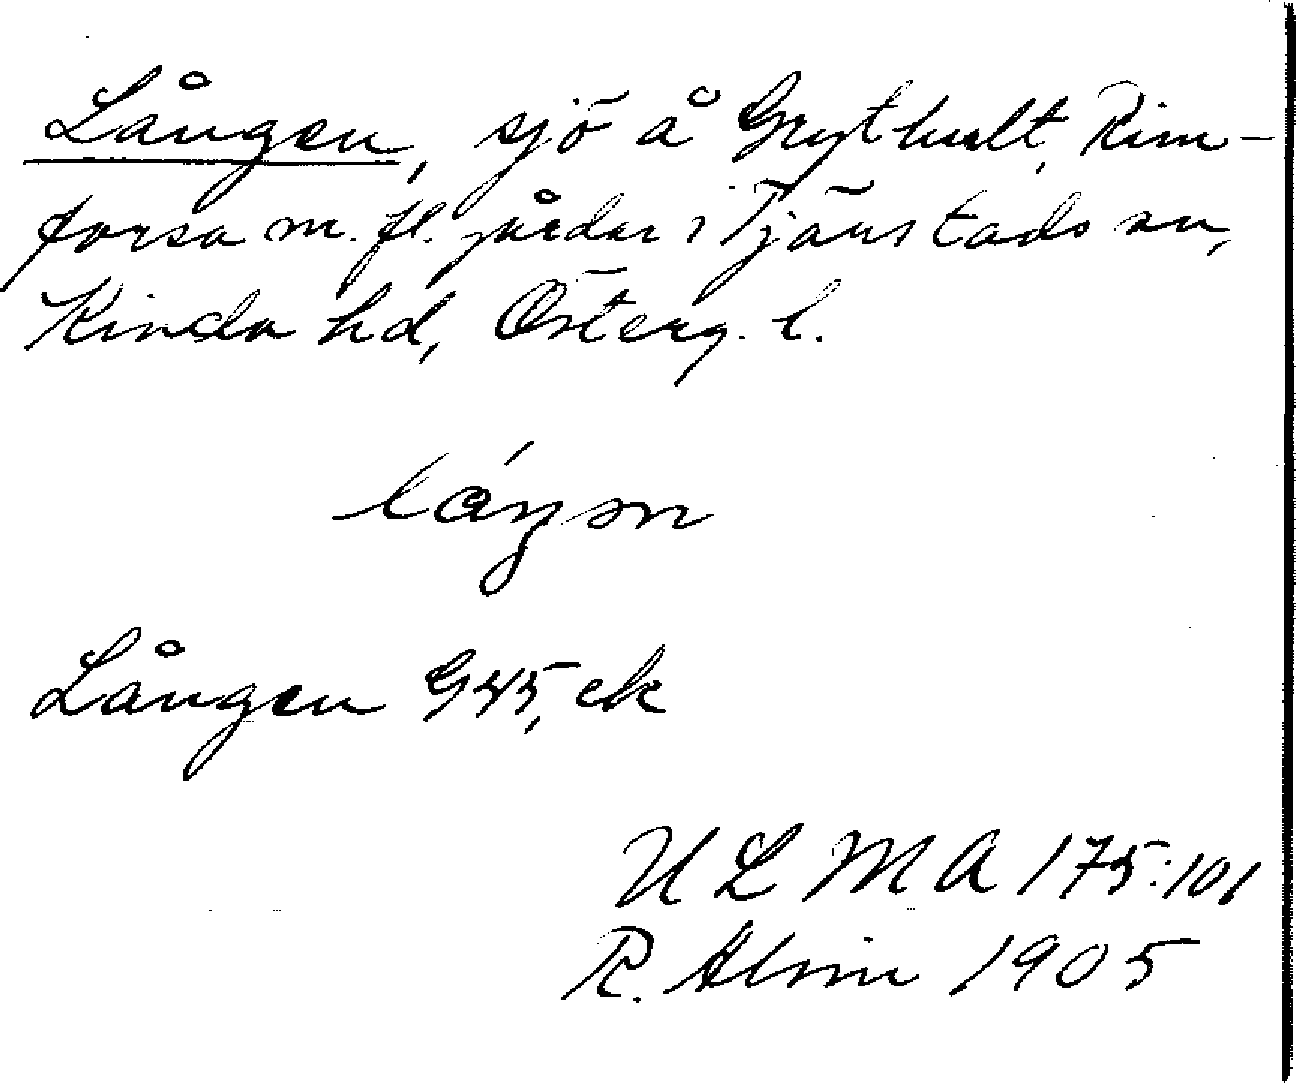 Lången, sjö å Grythult, Rim-
forsa m. fl. gårdar i Tjärstads sn,
Kinda hd, Österg. l.
láŋən
Lången G45, ek
ULMA 175:101
R. Almin 1905